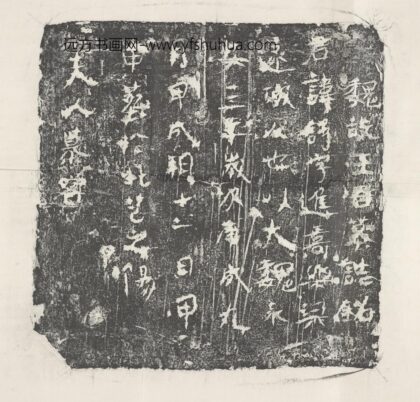 远方书画网-www.yfshuhua.com
魏故王君墓誌銘
君諱字進高樂浪
遂城人也以大魏永
安三年歲次庚戌九
月甲戌朔十一日甲
申葬於北芒之陽
夫人慕容